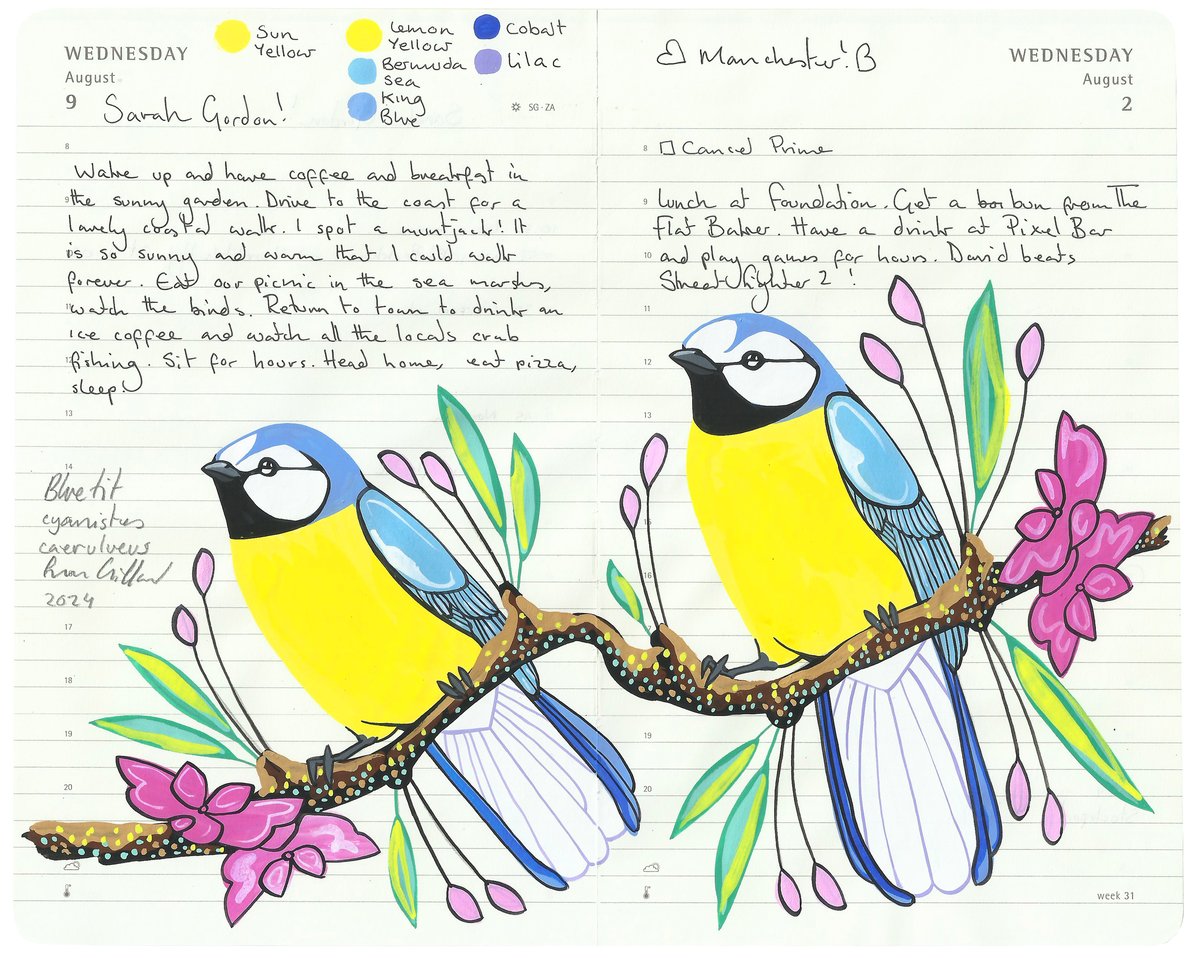 WEDNESDAY
August
9
Sun
Yellow
Lemon
Yellow
Bermuda
Sea
King
Blue
Cobalt
Lilac
SG-ZA
Sarah Gordon!
8
Wake up and have coffee and breakfast in
9 the sunny garden. Drive to the coast for a
lovely coastal walk. I spot a muntjack! It
is so sunny and warm that I could walk
forever. Eat our picnic in the sea marshs,
11 watch the birds. Return to town to drink an
ice coffee and watch all the locals crab
12 fishing. Sit for hours. Head home, eat pizza,
sleep!
13
14
Blue tit
cyanistes
caerulueus
2024
17
18
19
20
Manchester! B
WEDNESDAY
August
2
8 Cancel Prime
9 Lunch at Foundation. Get a bun from The
Flat Baker. Have a drink at Pixel Bar
10 and play games for hours. David beats
Streetfighter 2!
11
12
13
15
16
17
19
20
week 31